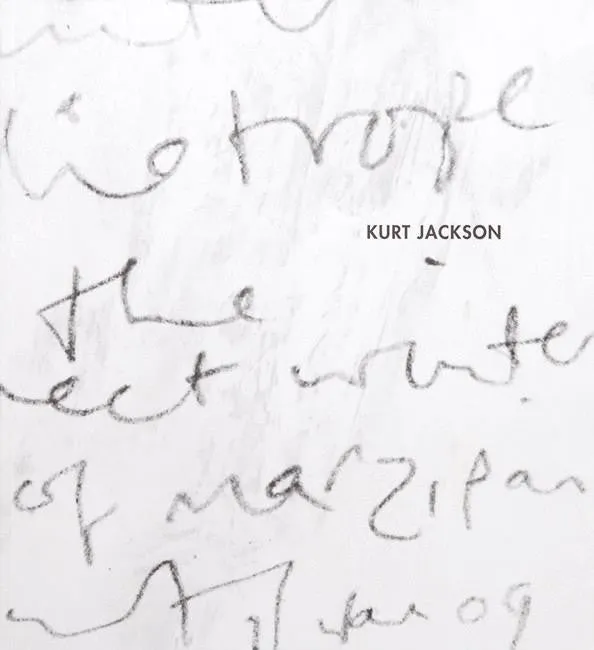 liotrope
KURT JACKSON
the
eet winter
of marzipan
Jan 09